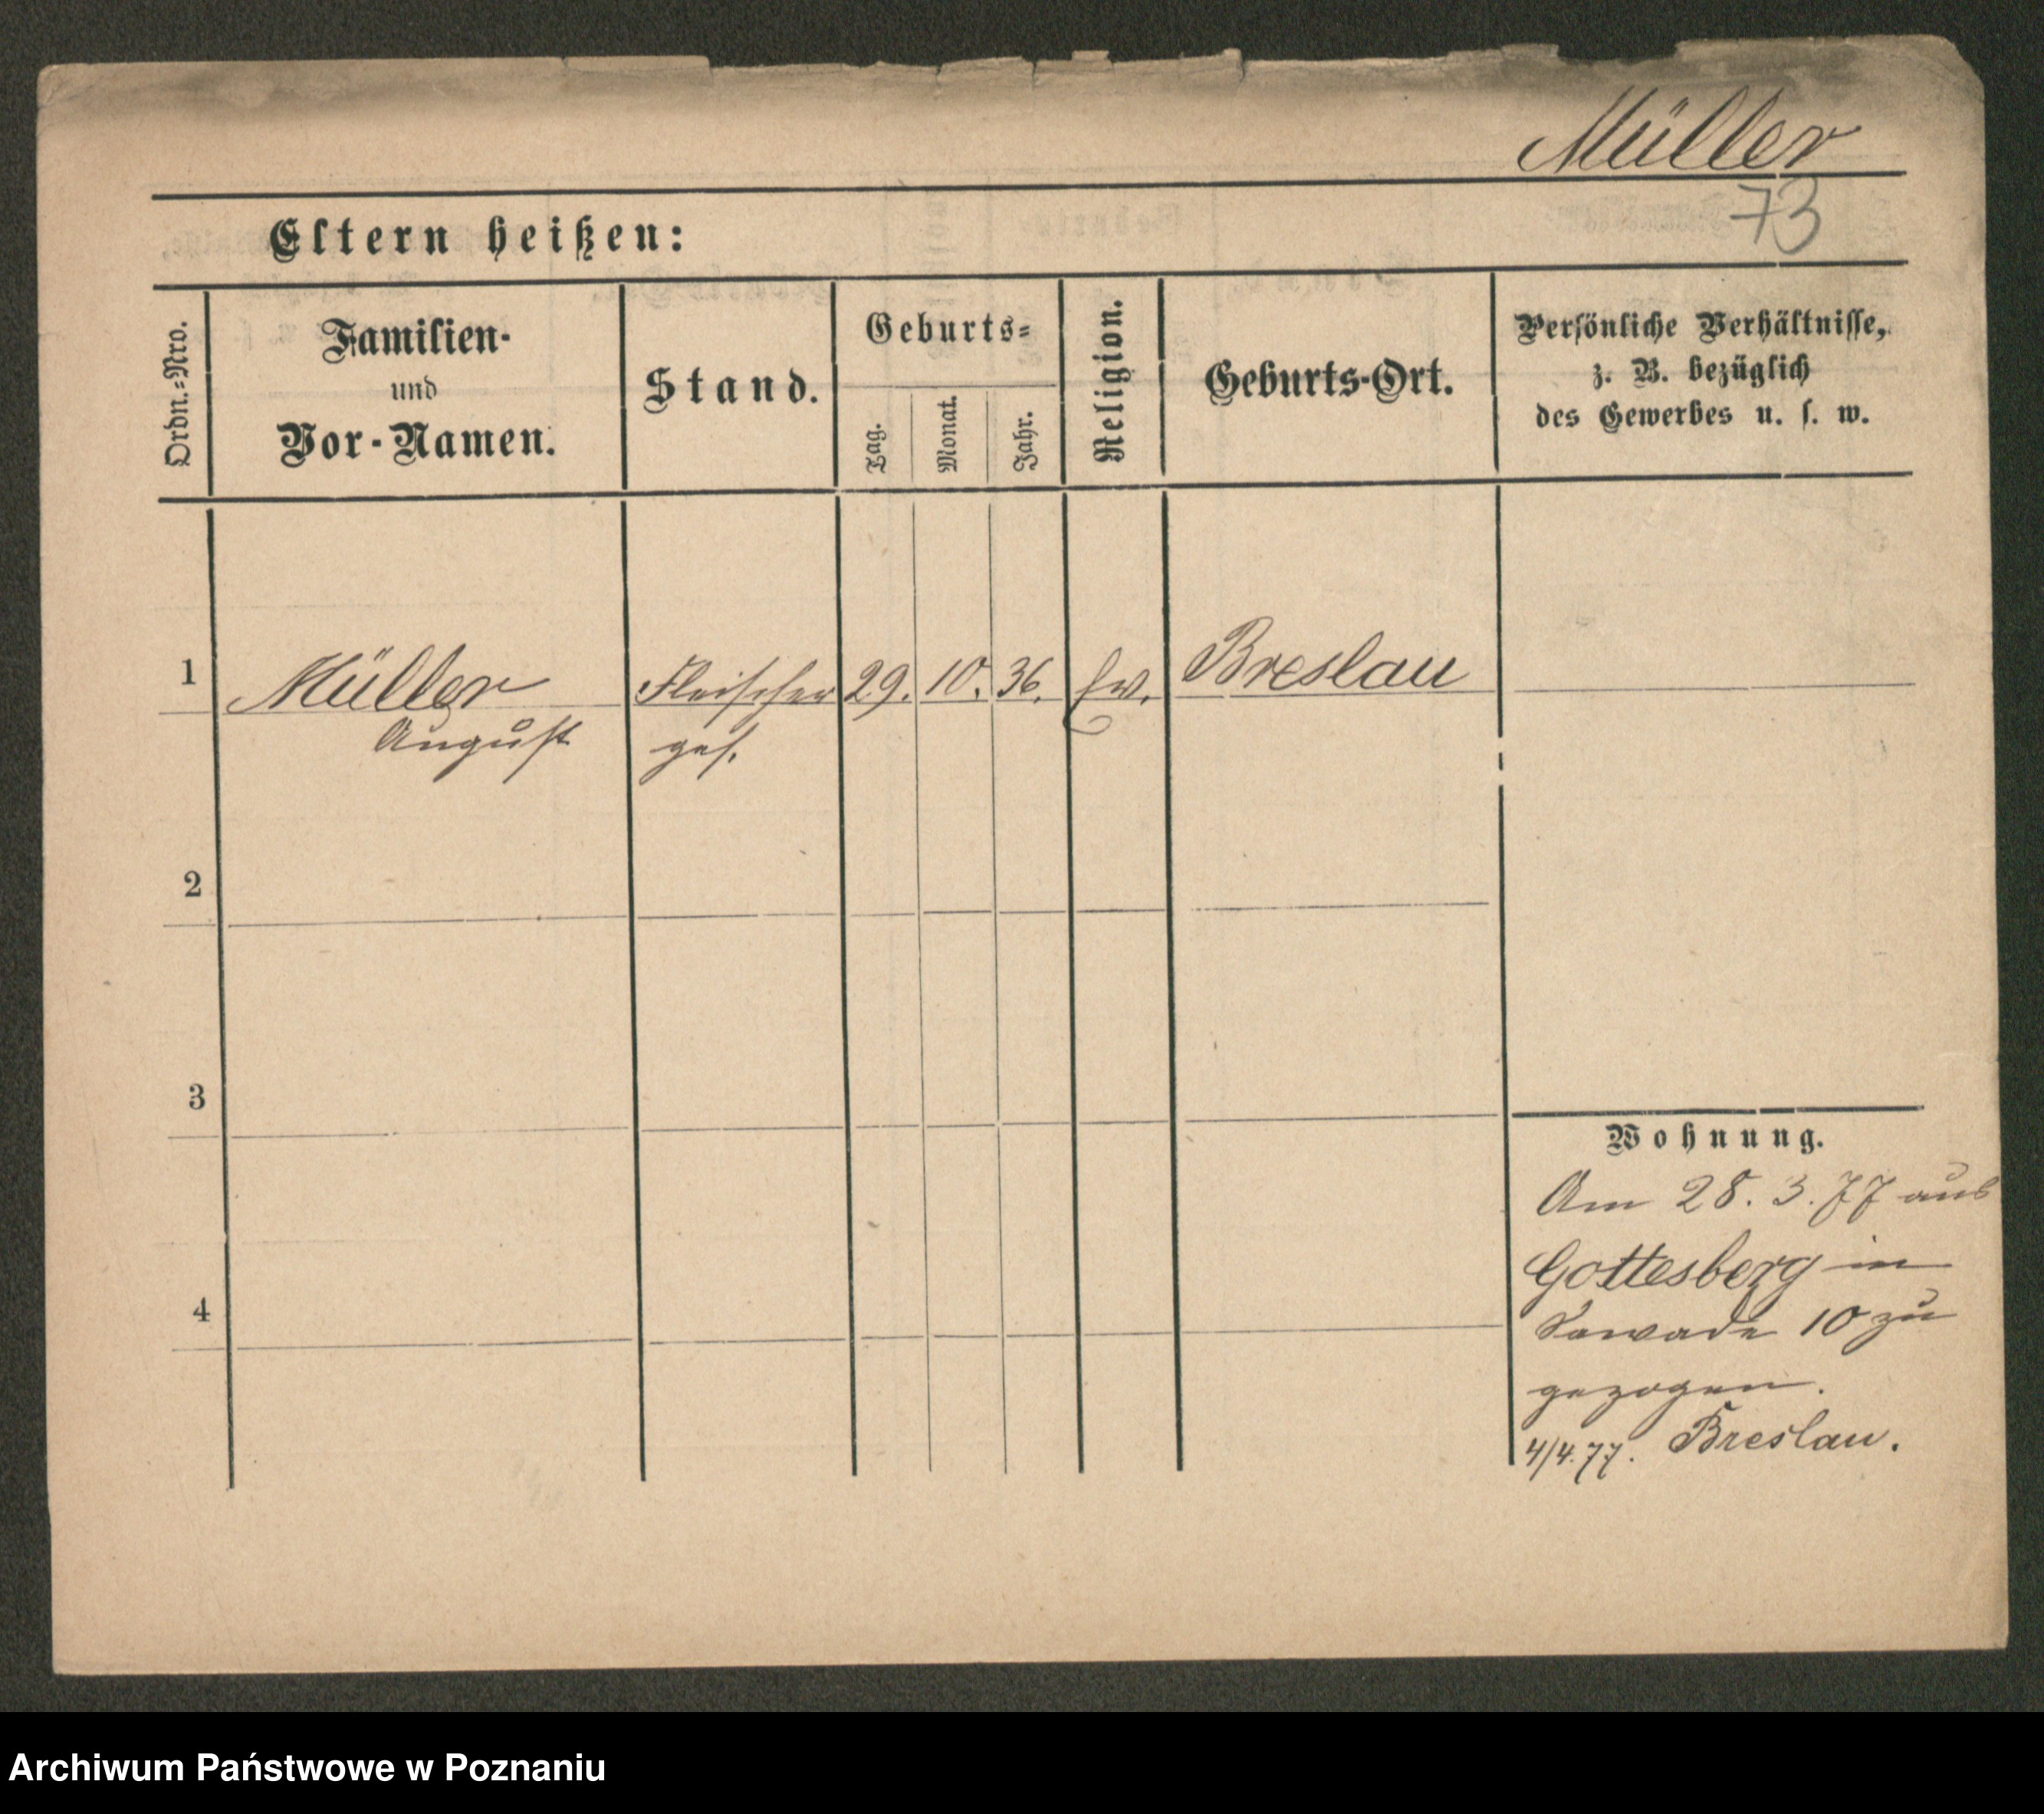 Müller
73
Eltern heißen:
Ordn.=Nro.
Familien-
und
Vor-Namen.
Stand.
Geburts=
Tag.
Monat.
Jahr.
Religion.
Geburts-Ort.
Persönliche Verhältnisse,
z. B. bezüglich
des Gewerbes u. s. w.
1 Müller Fleischer 29. 10. 36. Ev. Breslau
August ges.
2
3
4
Wohnung.
Am 28. 3. 77 aus
Gottesberg in
Sawade 10 zu
gezogen.
4/4.77. Breslau.
Archiwum Państwowe w Poznaniu